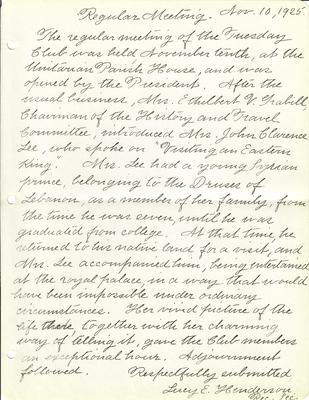 Regular Meeting. Nov. 10, 1925.
The regular meeting of the Tuesday
Club was held November tenth, at the
Unitarian Parish House, and was
opened by the President. After the
usual business, Mrs. Ethelbert V. Grabill,
Chairman of the History and Travel
Committee, introduced Mrs. John Clarence
Lee, who spoke on "Visiting an Eastern
King." Mrs. Lee had a young Syrian
prince, belonging to the Druses of
Lebanon, as a member of her family, from
the time he was seven, until he was
graduated from college. At that time, he
returned to his native land for a visit, and
Mrs. Lee accompanied him, being entertained
at the royal palace, in a way that would
have been impossible under ordinary
circumstances. Her vivid picture of the
life there together with her charming
way of telling it, gave the Club members
an exceptional hour. Adjournment
followed. Respectfully submitted
Lucy E. Henderson
Rec. Sec.